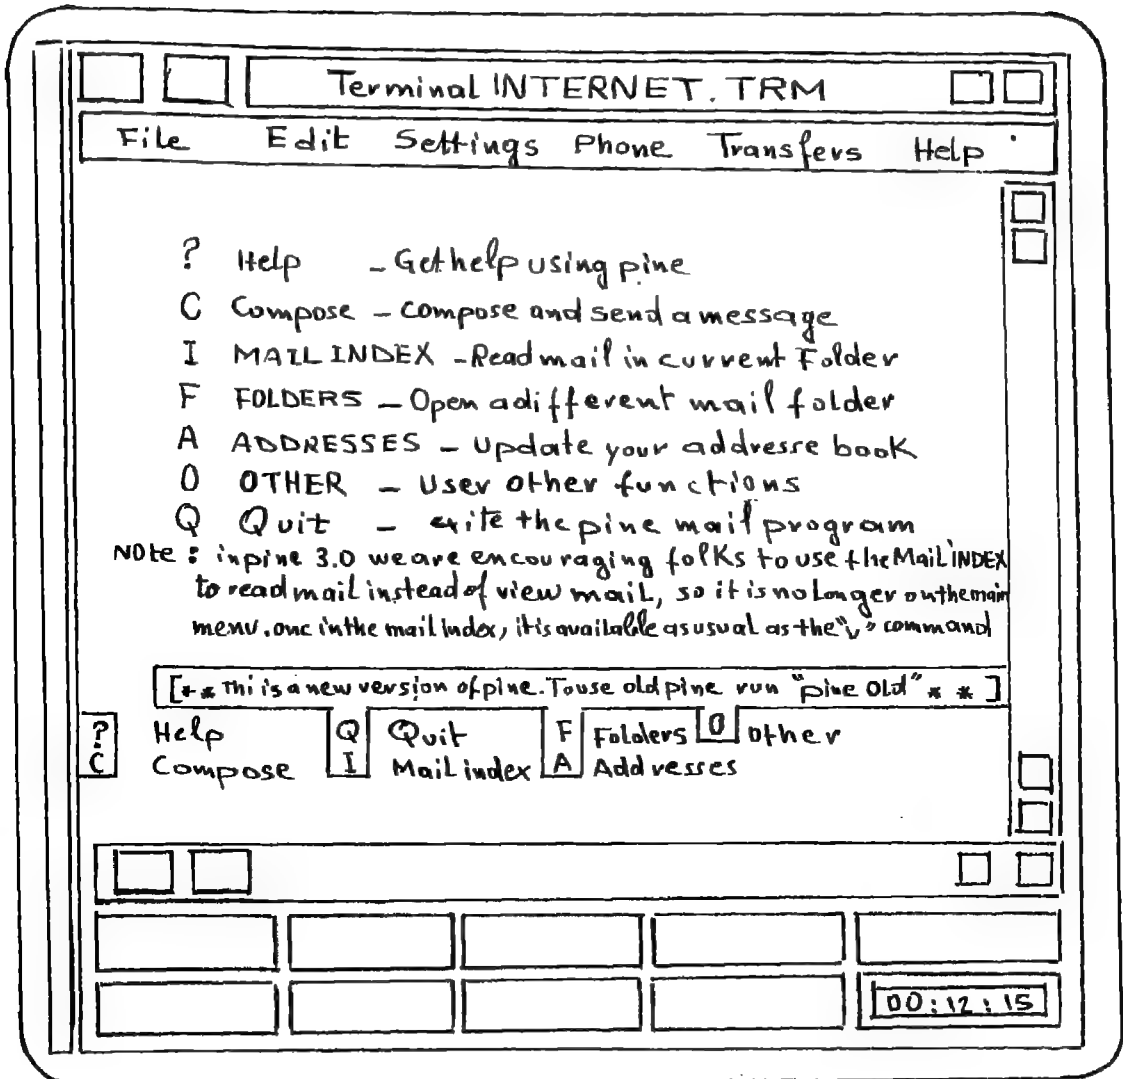 Terminal INTERNET.TRM
File Edit Settings Phone Transfers Help
? Help - Get help using pine
C Compose - compose and send a message
I MAIL INDEX - Read mail in current Folder
F FOLDERS - Open a different mail folder
A ADDRESSES - Update your addresse book
O OTHER - User other functions
Q Quit - exite the pine mail program
Note: in pine 3.0 we are encouraging folks to use the Mail INDEX
to read mail instead of view mail, so it is no longer on the main
menu. onc in the mail index, it is available as usual as the "v" command
[** This is a new version of pine. To use old pine run "pine Old" **]
? Help Q Quit F Folders O Other
C Compose I Mail index A Addresses
00:12:15